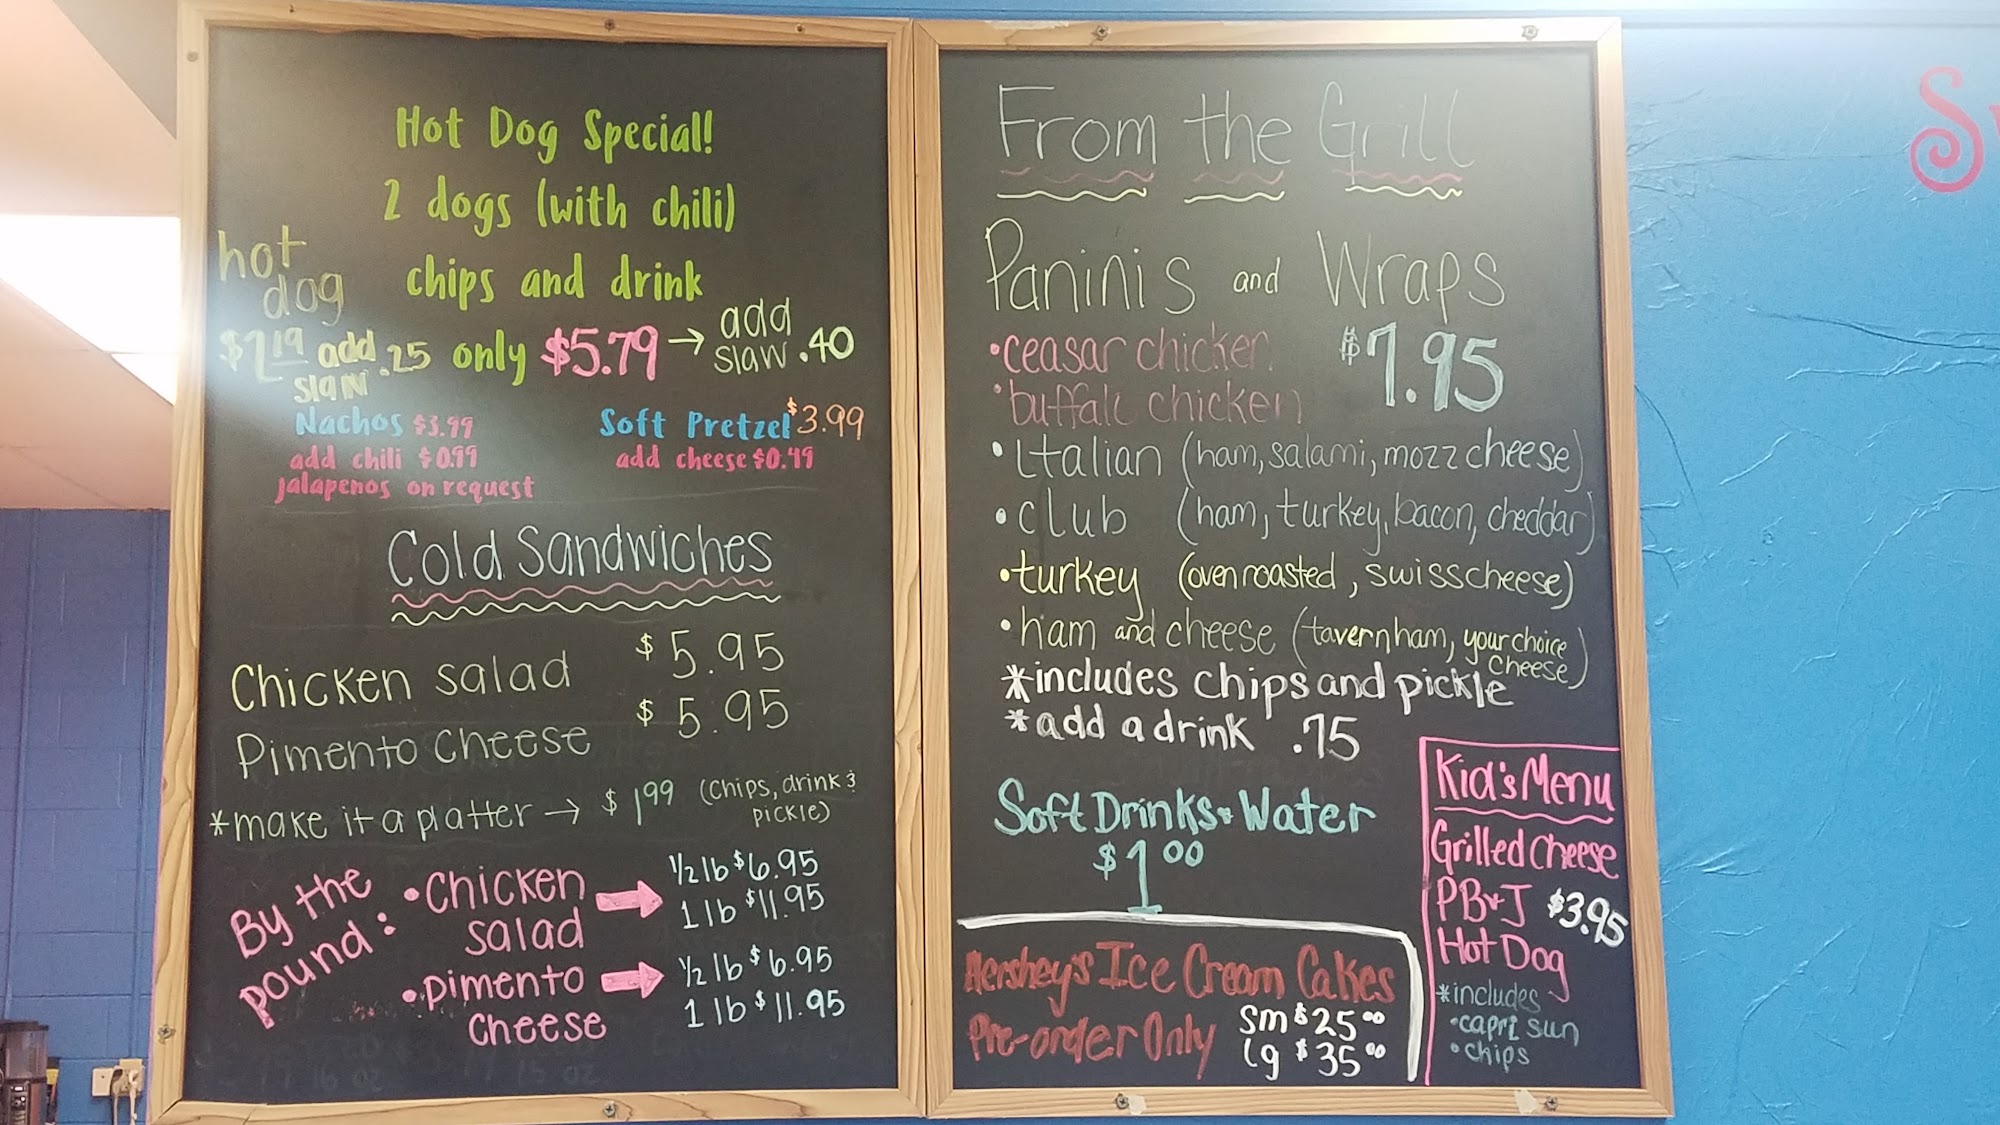 Hot Dog Special!
2 dogs (with chili)
chips and drink
only $5.79 → add slaw .40
hot dog
add slaw .25
Nachos $3.99
add chili $0.99
jalapenos on request
Soft Pretzel $3.99
add cheese $0.49
Cold Sandwiches
Chicken salad $5.95
Pimento Cheese $5.95
*make it a platter → $1.99 (Chips, drink & pickle)
By the pound:
•Chicken salad → 1/2 lb $6.95
1 lb $11.95
•pimento cheese → 1/2 lb $6.95
1 lb $11.95
From the Grill
Paninis and Wraps
$7.95
•ceasar chicken
•buffalo chicken
•Italian (ham, salami, mozz cheese)
•club (ham, turkey, bacon, cheddar)
•turkey (oven roasted, swiss cheese)
•ham and cheese (tavern ham, your choice cheese)
*includes chips and pickle
*add a drink .75
Soft Drinks • Water
$1.00
Hershey's Ice Cream Cakes
Pre-order Only
sm $25.00
lg $35.00
Kid's Menu
Grilled Cheese
PB&J $3.95
Hot Dog
*includes
•capri sun
•chips